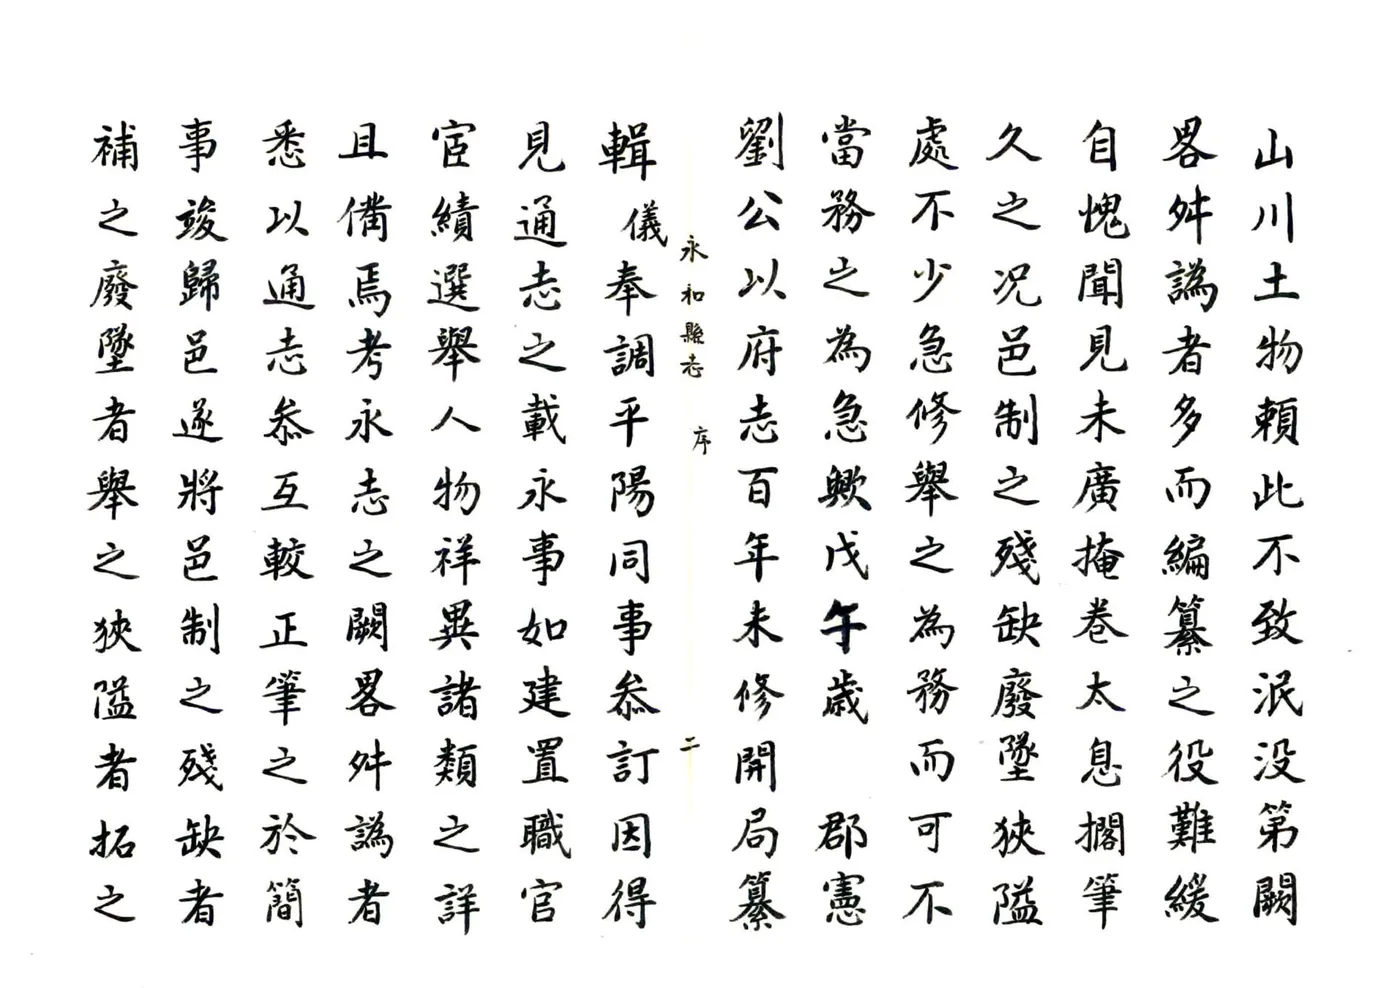 山川土物頼此不致泯没第闕
畧舛譌者多而編纂之役難緩
自愧聞見未廣掩卷太息擱筆
久之况邑制之殘缺廢墜狹隘
處不少急修舉之為務而可不
當務之為急歟戊午歲　郡憲
劉公以府志百年未修開局纂
永和縣志　序　二
輯儀奉調平陽同事叅訂因得
見通志之載永事如建置職官
宦績選舉人物祥異諸類之詳
且備焉考永志之闕畧舛譌者
悉以通志叅互較正筆之於簡
事竣歸邑遂將邑制之殘缺者
補之廢墜者舉之狹隘者拓之